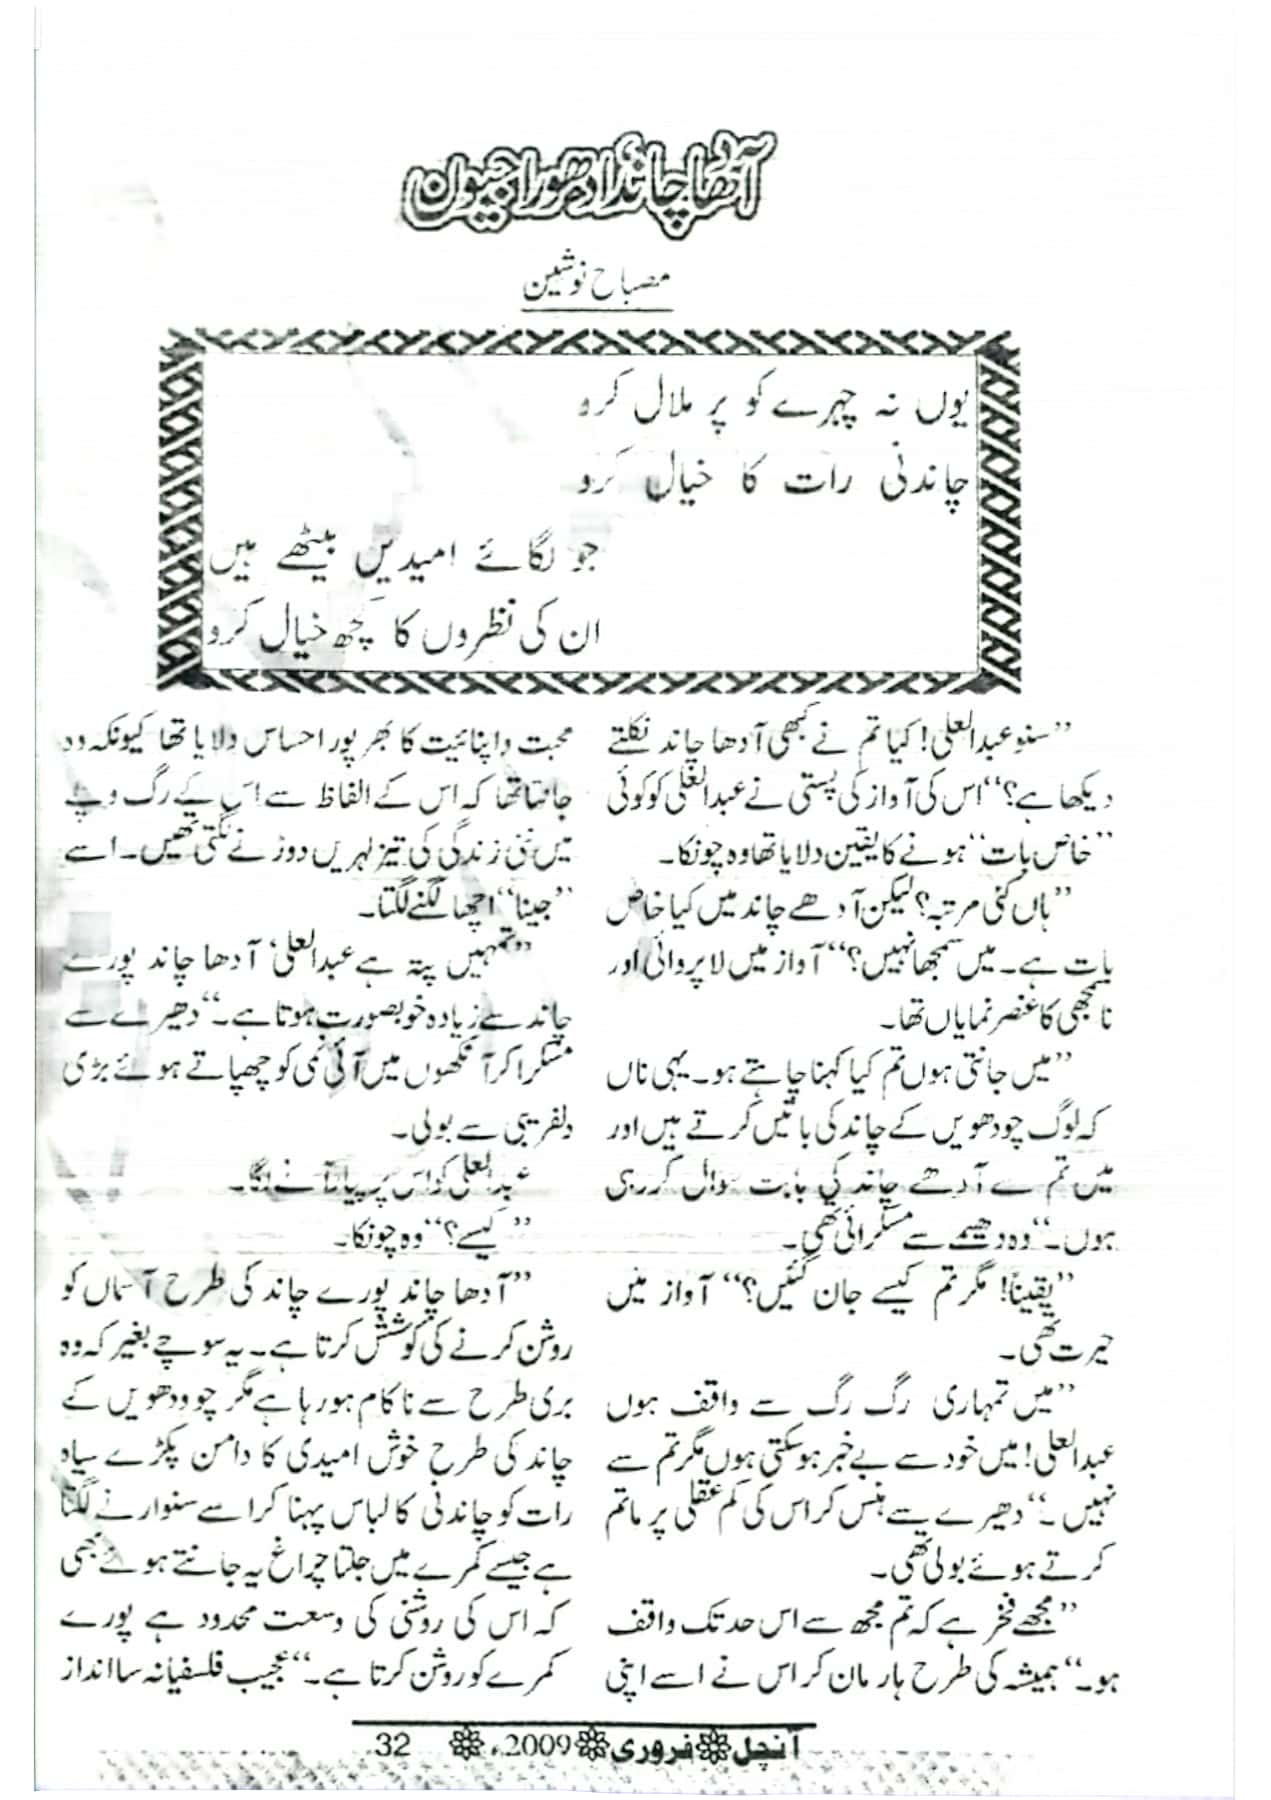 آدھا چاند ادھورا جیون
مصباح نوشین
یوں نہ چہرے کو پر ملال کرو
چاندنی رات کا خیال کرو
جو لگائے امیدیں بیٹھے ہیں
ان کی نظروں کا کچھ خیال کرو
”سنو عبدالعلی! کیا تم نے کبھی آدھا چاند نکلتے
دیکھا ہے؟“ اس کی آواز کی پستی نے عبدالعلی کو کوئی
”خاص بات“ ہونے کا یقین دلایا تھا وہ چونکا۔
”ہاں کئی مرتبہ؟ لیکن آدھے چاند میں کیا خاص
بات ہے۔ میں سمجھا نہیں؟“ آواز میں لاپروائی اور
ناسمجھی کا عنصر نمایاں تھا۔
”میں جانتی ہوں تم کیا کہنا چاہتے ہو۔ یہی ناں
کہ لوگ چودھویں کے چاند کی باتیں کرتے ہیں اور
میں تم سے آدھے چاند کی بابت سوال کر رہی
ہوں۔“ وہ دھیمے سے مسکرائی تھی۔
”یقیناً! مگر تم کیسے جان گئیں؟“ آواز میں
حیرت تھی۔
”میں تمہاری رگ رگ سے واقف ہوں
عبدالعلی! میں خود سے بے خبر ہو سکتی ہوں مگر تم سے
نہیں۔“ دھیرے سے ہنس کر اس کی کم عقلی پر ماتم
کرتے ہوئے بولی تھی۔
”مجھے فخر ہے کہ تم مجھ سے اس حد تک واقف
ہو۔“ ہمیشہ کی طرح ہار مان کر اس نے اسے اپنی
محبت واپنائیت کا بھرپور احساس دلایا تھا کیونکہ وہ
جانتا تھا کہ اس کے الفاظ سے اس کے رگ وپے
میں نئی زندگی کی تیز لہریں دوڑنے لگتی تھیں۔ اسے
”جینا“ اچھا لگنے لگتا۔
”تمہیں پتہ ہے عبدالعلی‘ آدھا چاند پورے
چاند سے زیادہ خوبصورت ہوتا ہے۔“ دھیرے سے
مسکرا کر آنکھوں میں آئی نمی کو چھپاتے ہوئے بڑی
دلفریبی سے بولی۔
عبدالعلی کو اس پر پیار آنے لگا۔
”کیسے؟“ وہ چونکا۔
”آدھا چاند پورے چاند کی طرح آسماں کو
روشن کرنے کی کوشش کرتا ہے۔ یہ سوچے بغیر کہ وہ
بری طرح سے ناکام ہو رہا ہے مگر چودھویں کے
چاند کی طرح خوش امیدی کا دامن پکڑے سیاہ
رات کو چاندنی کا لباس پہنا کر اسے سنوارنے لگتا
ہے جیسے کمرے میں جلتا چراغ یہ جانتے ہوئے بھی
کہ اس کی روشنی کی وسعت محدود ہے پورے
کمرے کو روشن کرتا ہے۔“ عجیب فلسفیانہ سا انداز
آنچل فروری 2009ء 32